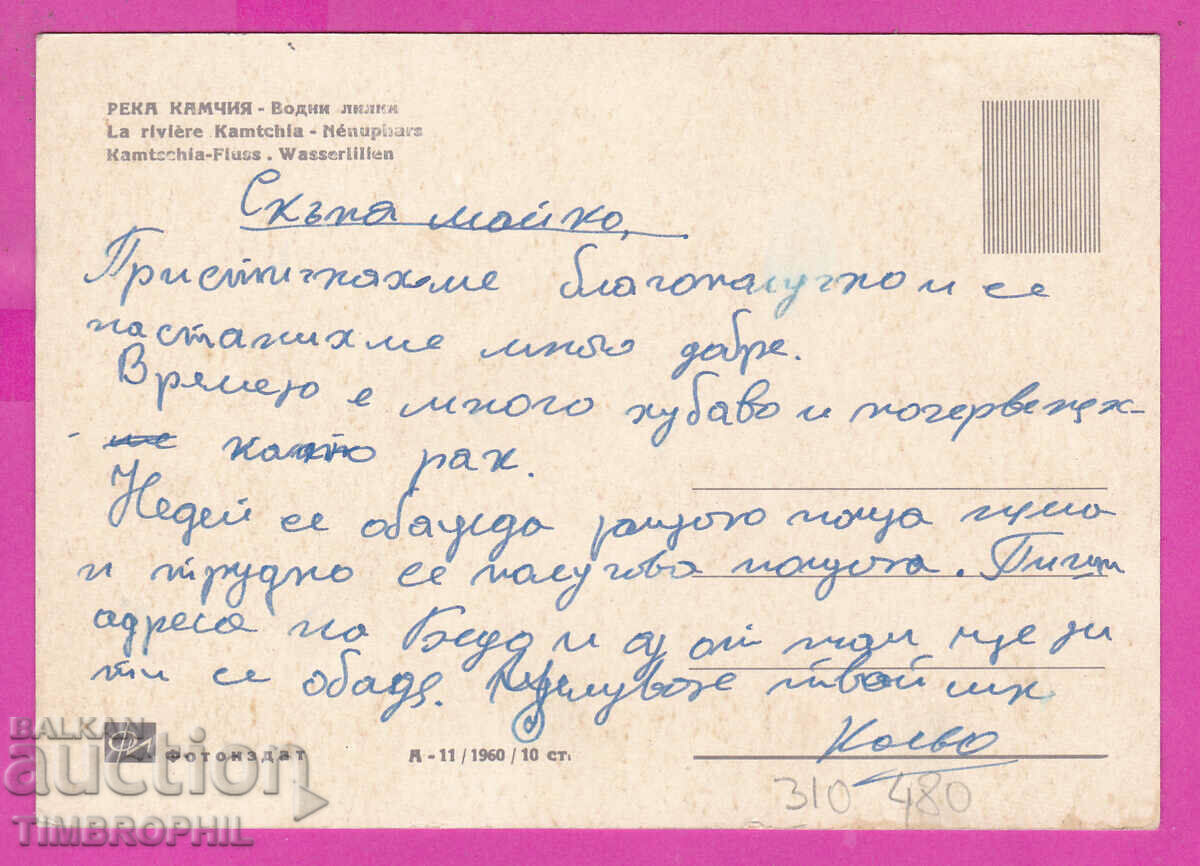 РЕКА КАМЧИЯ - Водни лилии
La rivière Kamtchia - Nénuphars
Kamtschia-Fluss . Wasserlilien
Скъпа майко,
Пристигнахме благополучно и се
настанихме много добре.
Времето е много хубаво и почервенях-
ме като рак.
Недей се обажда защото поща няма
и трудно се получава пощата. Пиши
адреса на и аз от там ще
ти се обадя. Целувам те твой
Кольо
Фотоиздат
А - 11 / 1960 / 10 ст.
310 480
BALKAN
auction
TIMBROPHIL